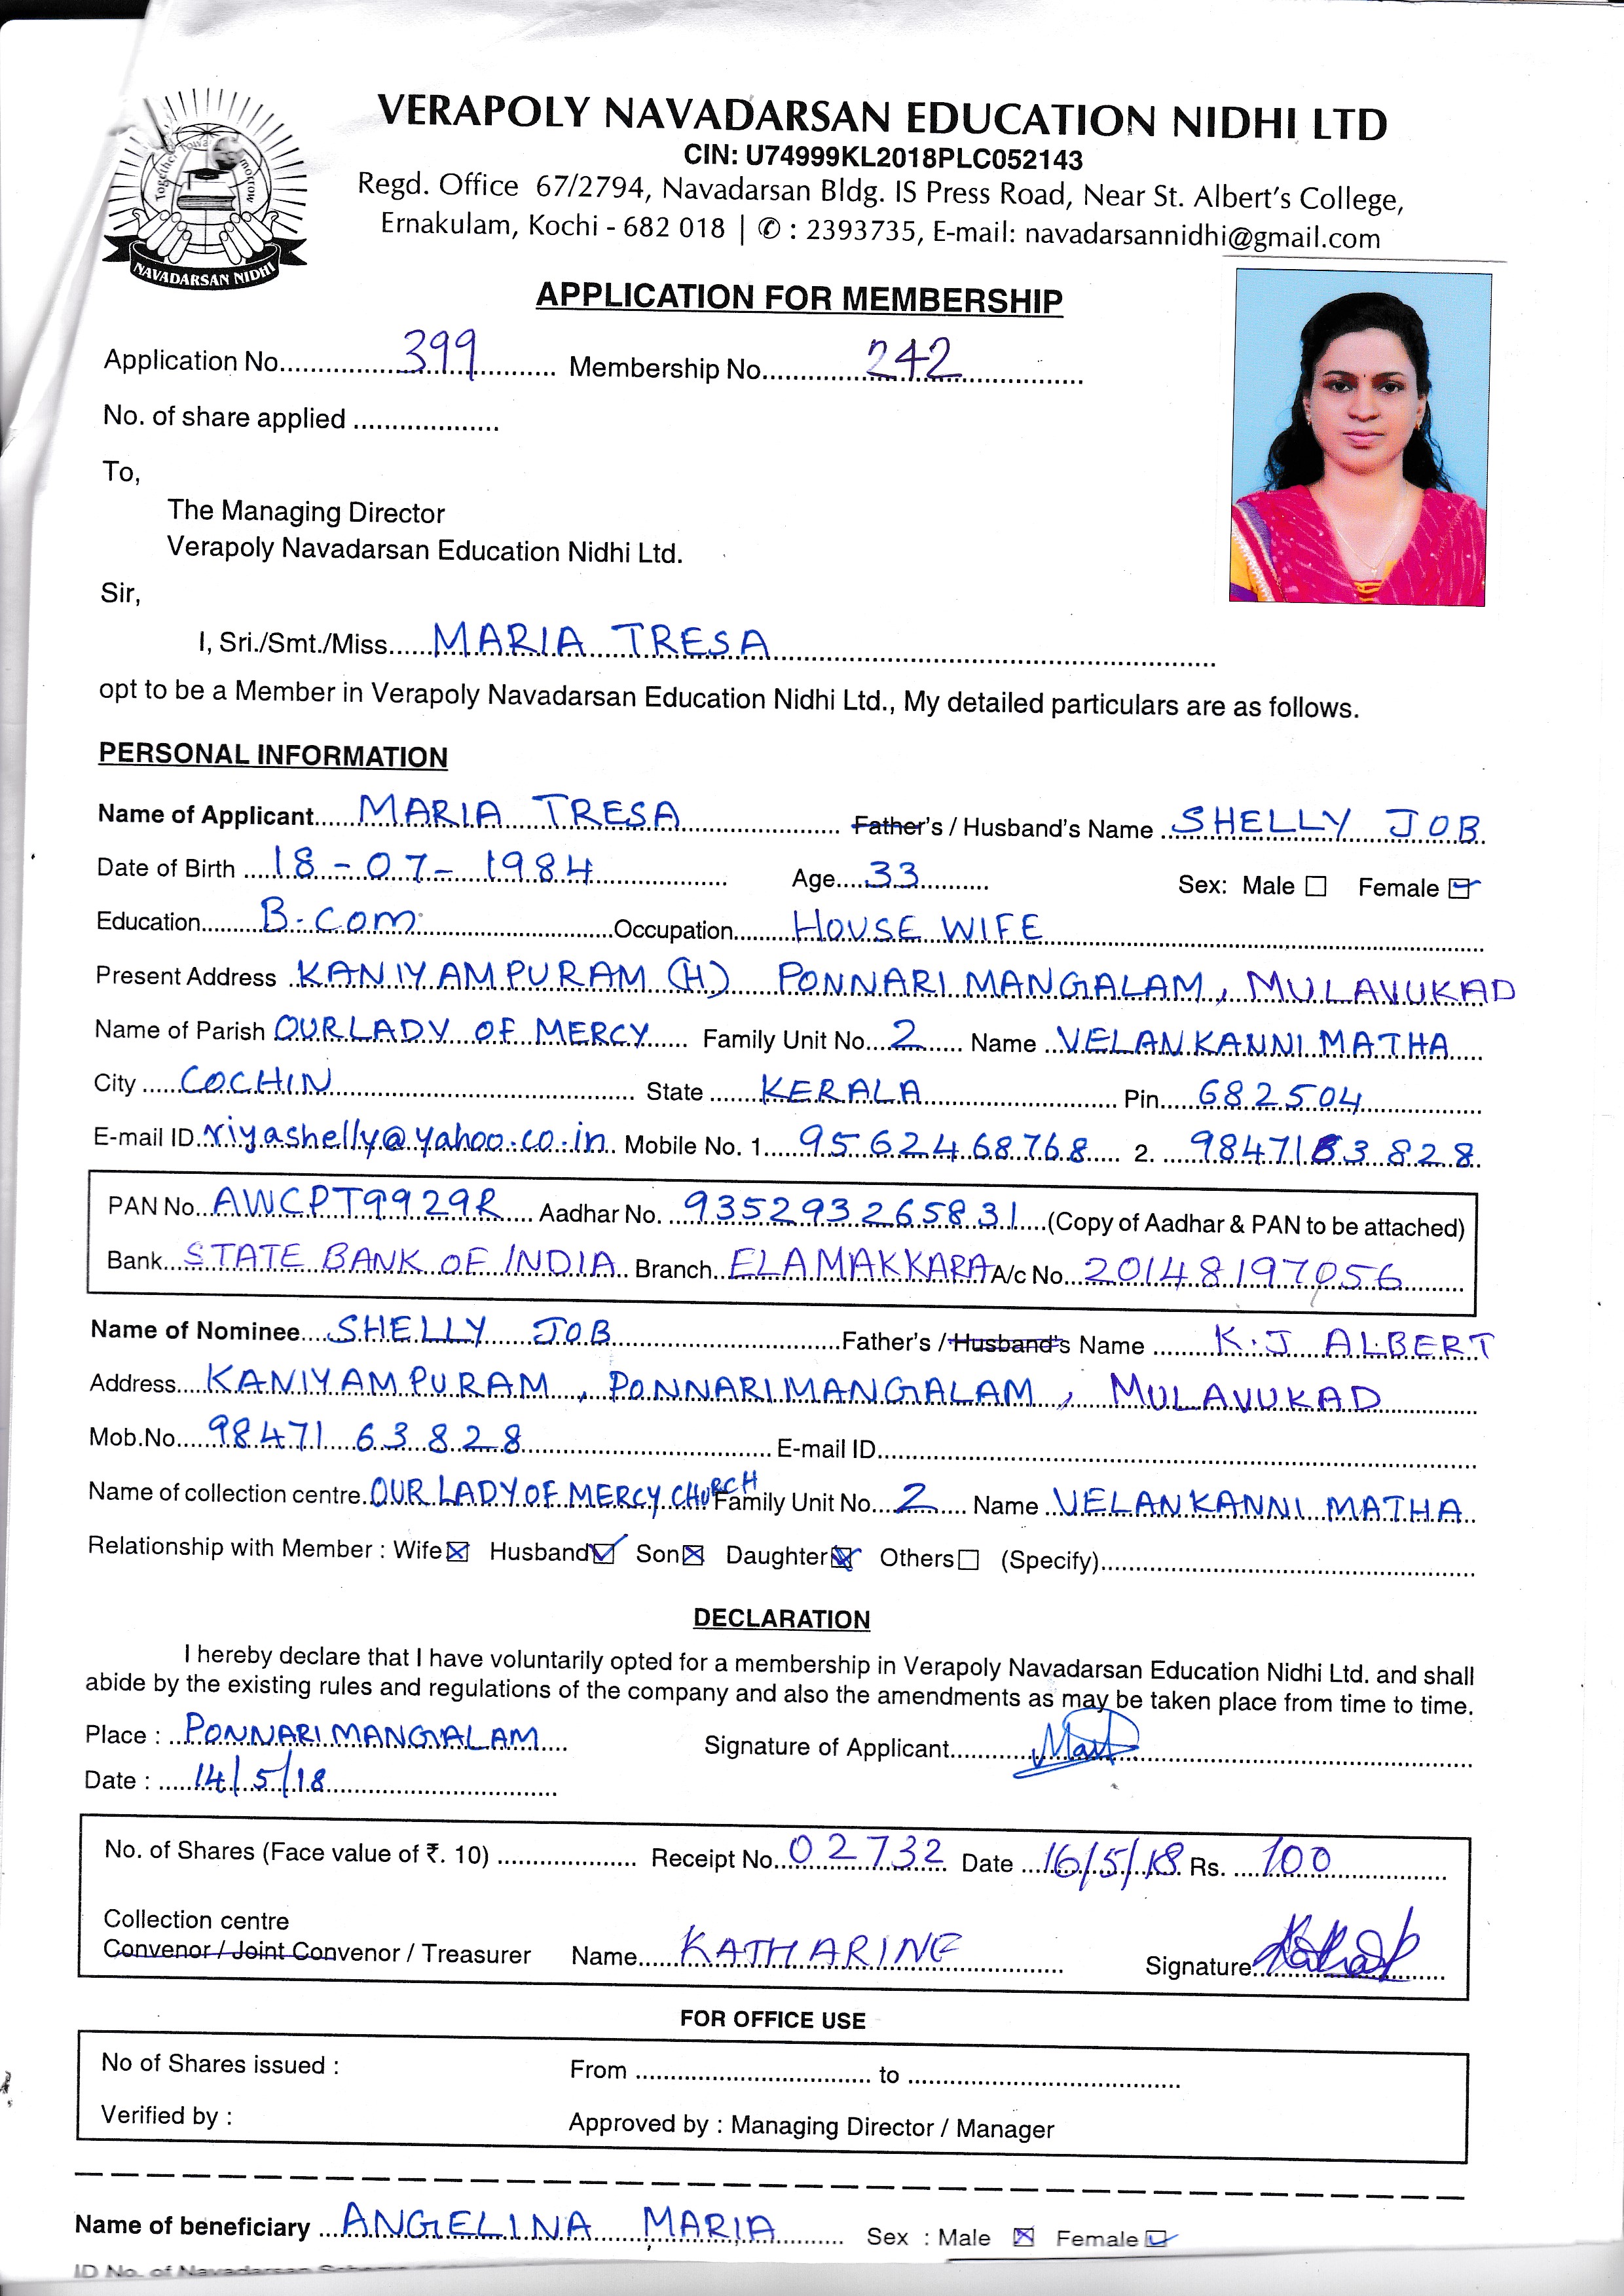 VERAPOLY NAVADARSAN EDUCATION NIDHI LTD
CIN: U74999KL2018PLC052143
Regd. Office 67/2794, Navadarsan Bldg. IS Press Road, Near St. Albert's College,
Ernakulam, Kochi - 682 018 | ✆ : 2393735, E-mail: navadarsannidhi@gmail.com
NAVADARSAN NIDHI
APPLICATION FOR MEMBERSHIP
Application No. 399 Membership No. 242
No. of share applied
To,
The Managing Director
Verapoly Navadarsan Education Nidhi Ltd.
Sir,
I, Sri./Smt./Miss. MARIA TRESA
opt to be a Member in Verapoly Navadarsan Education Nidhi Ltd., My detailed particulars are as follows.
PERSONAL INFORMATION
Name of Applicant MARIA TRESA Father's / Husband's Name SHELLY JOB
Date of Birth 18-07-1984 Age 33 Sex: Male ☐ Female ☑
Education B.COM Occupation HOUSE WIFE
Present Address KANIYAMPURAM (H) PONNARIMANGALAM, MULAVUKAD
Name of Parish OUR LADY OF MERCY Family Unit No. 2 Name VELANKANNI MATHA
City COCHIN State KERALA Pin 682504
E-mail ID riyashelly@yahoo.co.in Mobile No. 1. 9562468768 2. 9847163828
PAN No. AWCPT9929R Aadhar No. 935293265831 (Copy of Aadhar & PAN to be attached)
Bank STATE BANK OF INDIA Branch ELAMAKKARA A/c No. 20148197056
Name of Nominee SHELLY JOB Father's / Husband's Name K.J ALBERT
Address KANIYAMPURAM, PONNARIMANGALAM, MULAVUKAD
Mob.No. 9847163828 E-mail ID
Name of collection centre OUR LADY OF MERCY CHURCH Family Unit No. 2 Name VELANKANNI MATHA
Relationship with Member : Wife ☒ Husband ☑ Son ☒ Daughter ☒ Others ☐ (Specify)
DECLARATION
I hereby declare that I have voluntarily opted for a membership in Verapoly Navadarsan Education Nidhi Ltd. and shall
abide by the existing rules and regulations of the company and also the amendments as may be taken place from time to time.
Place : PONNARIMANGALAM Signature of Applicant
Date : 14/5/18
No. of Shares (Face value of ₹. 10) Receipt No. 02732 Date 16/5/18 Rs. 100
Collection centre
Convenor / Joint Convenor / Treasurer Name KATHARINE Signature
FOR OFFICE USE
No of Shares issued : From to
Verified by : Approved by : Managing Director / Manager
Name of beneficiary ANGELINA MARIA Sex : Male ☒ Female ☑
ID No. of Navadarsan